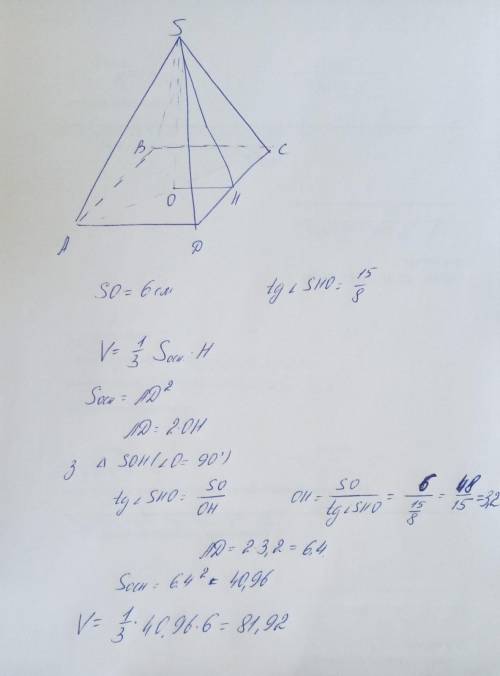 S
B
C
O
H
A
D
SO = 6 см tg∠SHO = 15/8
V = 1/3 Sосн · H
Sосн = AD²
AD = 2·OH
З △ SOH (∠O = 90°)
tg∠SHO = SO/OH OH = SO/tg∠SHO = 6/(15/8) = 48/15 = 3,2
AD = 2·3,2 = 6.4.
Sосн = 6.4² = 40,96
V = 1/3 · 40,96 · 6 = 81,92